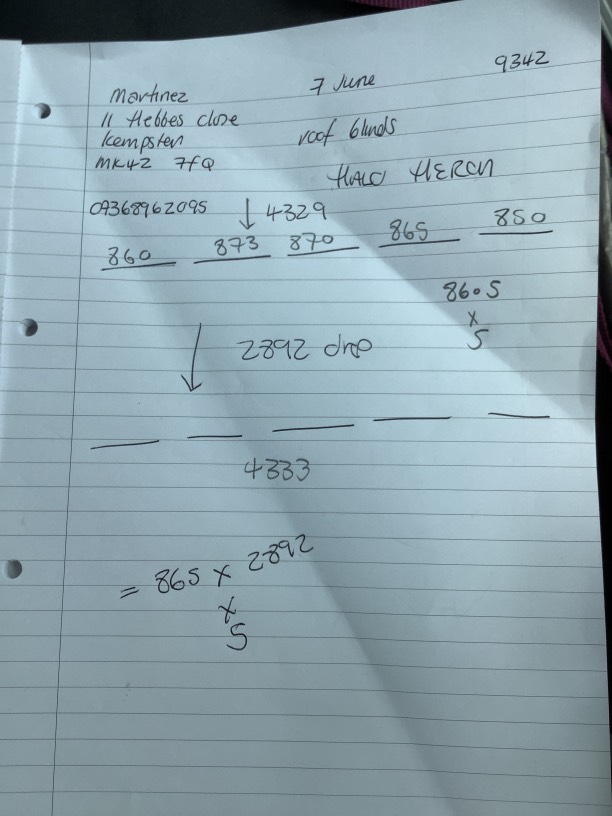 9342
Martinez 7 June
11 Hebbes close
Kempsten roof blinds
MK42 7FQ
HALO HERON
07368962095 ↓ 4329
860 873 870 865 850
860.5
x
5
↓ 2892 drop
4333
= 865 x 2892
x
5